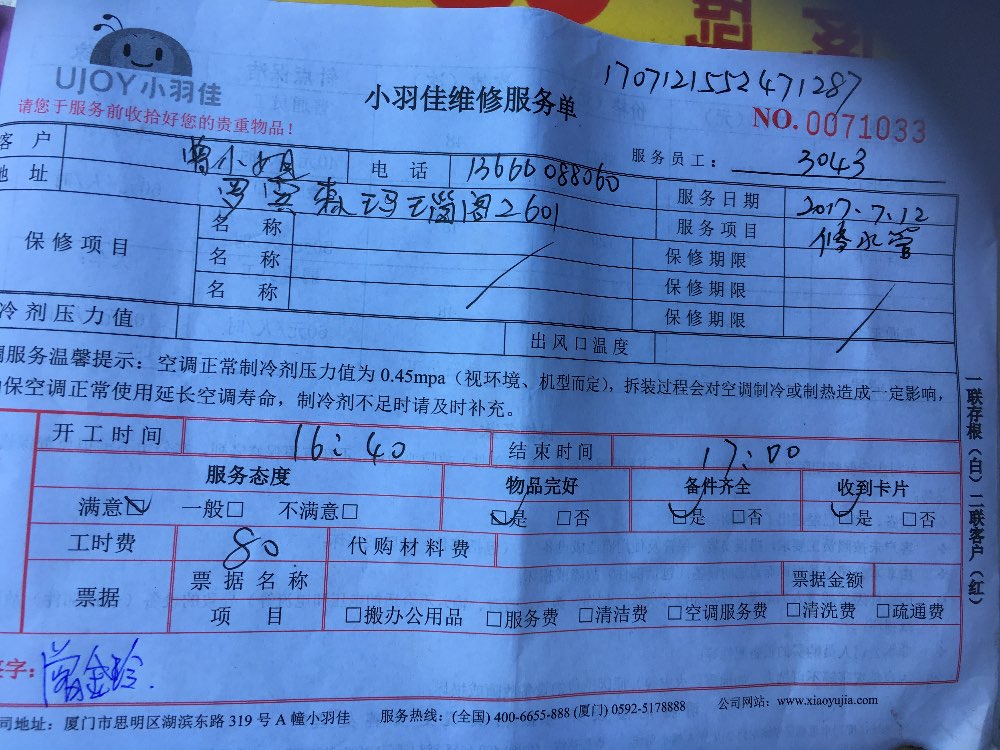 UJOY小羽佳
请您于服务前收拾好您的贵重物品！
小羽佳维修服务单
1707121552471287
NO. 0071033
服务员工： 3043
客 户 曾小姐 电 话 13666088060
地 址 罗宾森玛瑙阁2601 服务日期 2017.7.12
保修项目 名 称 服务项目 修水管
名 称 保修期限
名 称 保修期限
保修期限
冷剂压力值 出风口温度
调服务温馨提示：空调正常制冷剂压力值为0.45mpa（视环境、机型而定），拆装过程会对空调制冷或制热造成一定影响，
保空调正常使用延长空调寿命，制冷剂不足时请及时补充。
开工时间 16:40 结束时间 17:00
服务态度 物品完好 备件齐全 收到卡片
满意☑ 一般□ 不满意□ ☑是 □否 ☑是 □否 ☑是 □否
工时费 80 代购材料费
票据 票据名称 票据金额
项 目 □搬办公用品 □服务费 □清洁费 □空调服务费 □清洗费 □疏通费
签字： 曾金玲
司地址：厦门市思明区湖滨东路319号A幢小羽佳 服务热线：(全国) 400-6655-888 (厦门) 0592-5178888 公司网站：www.xiaoyujia.com
一联存根（白）二联客户（红）